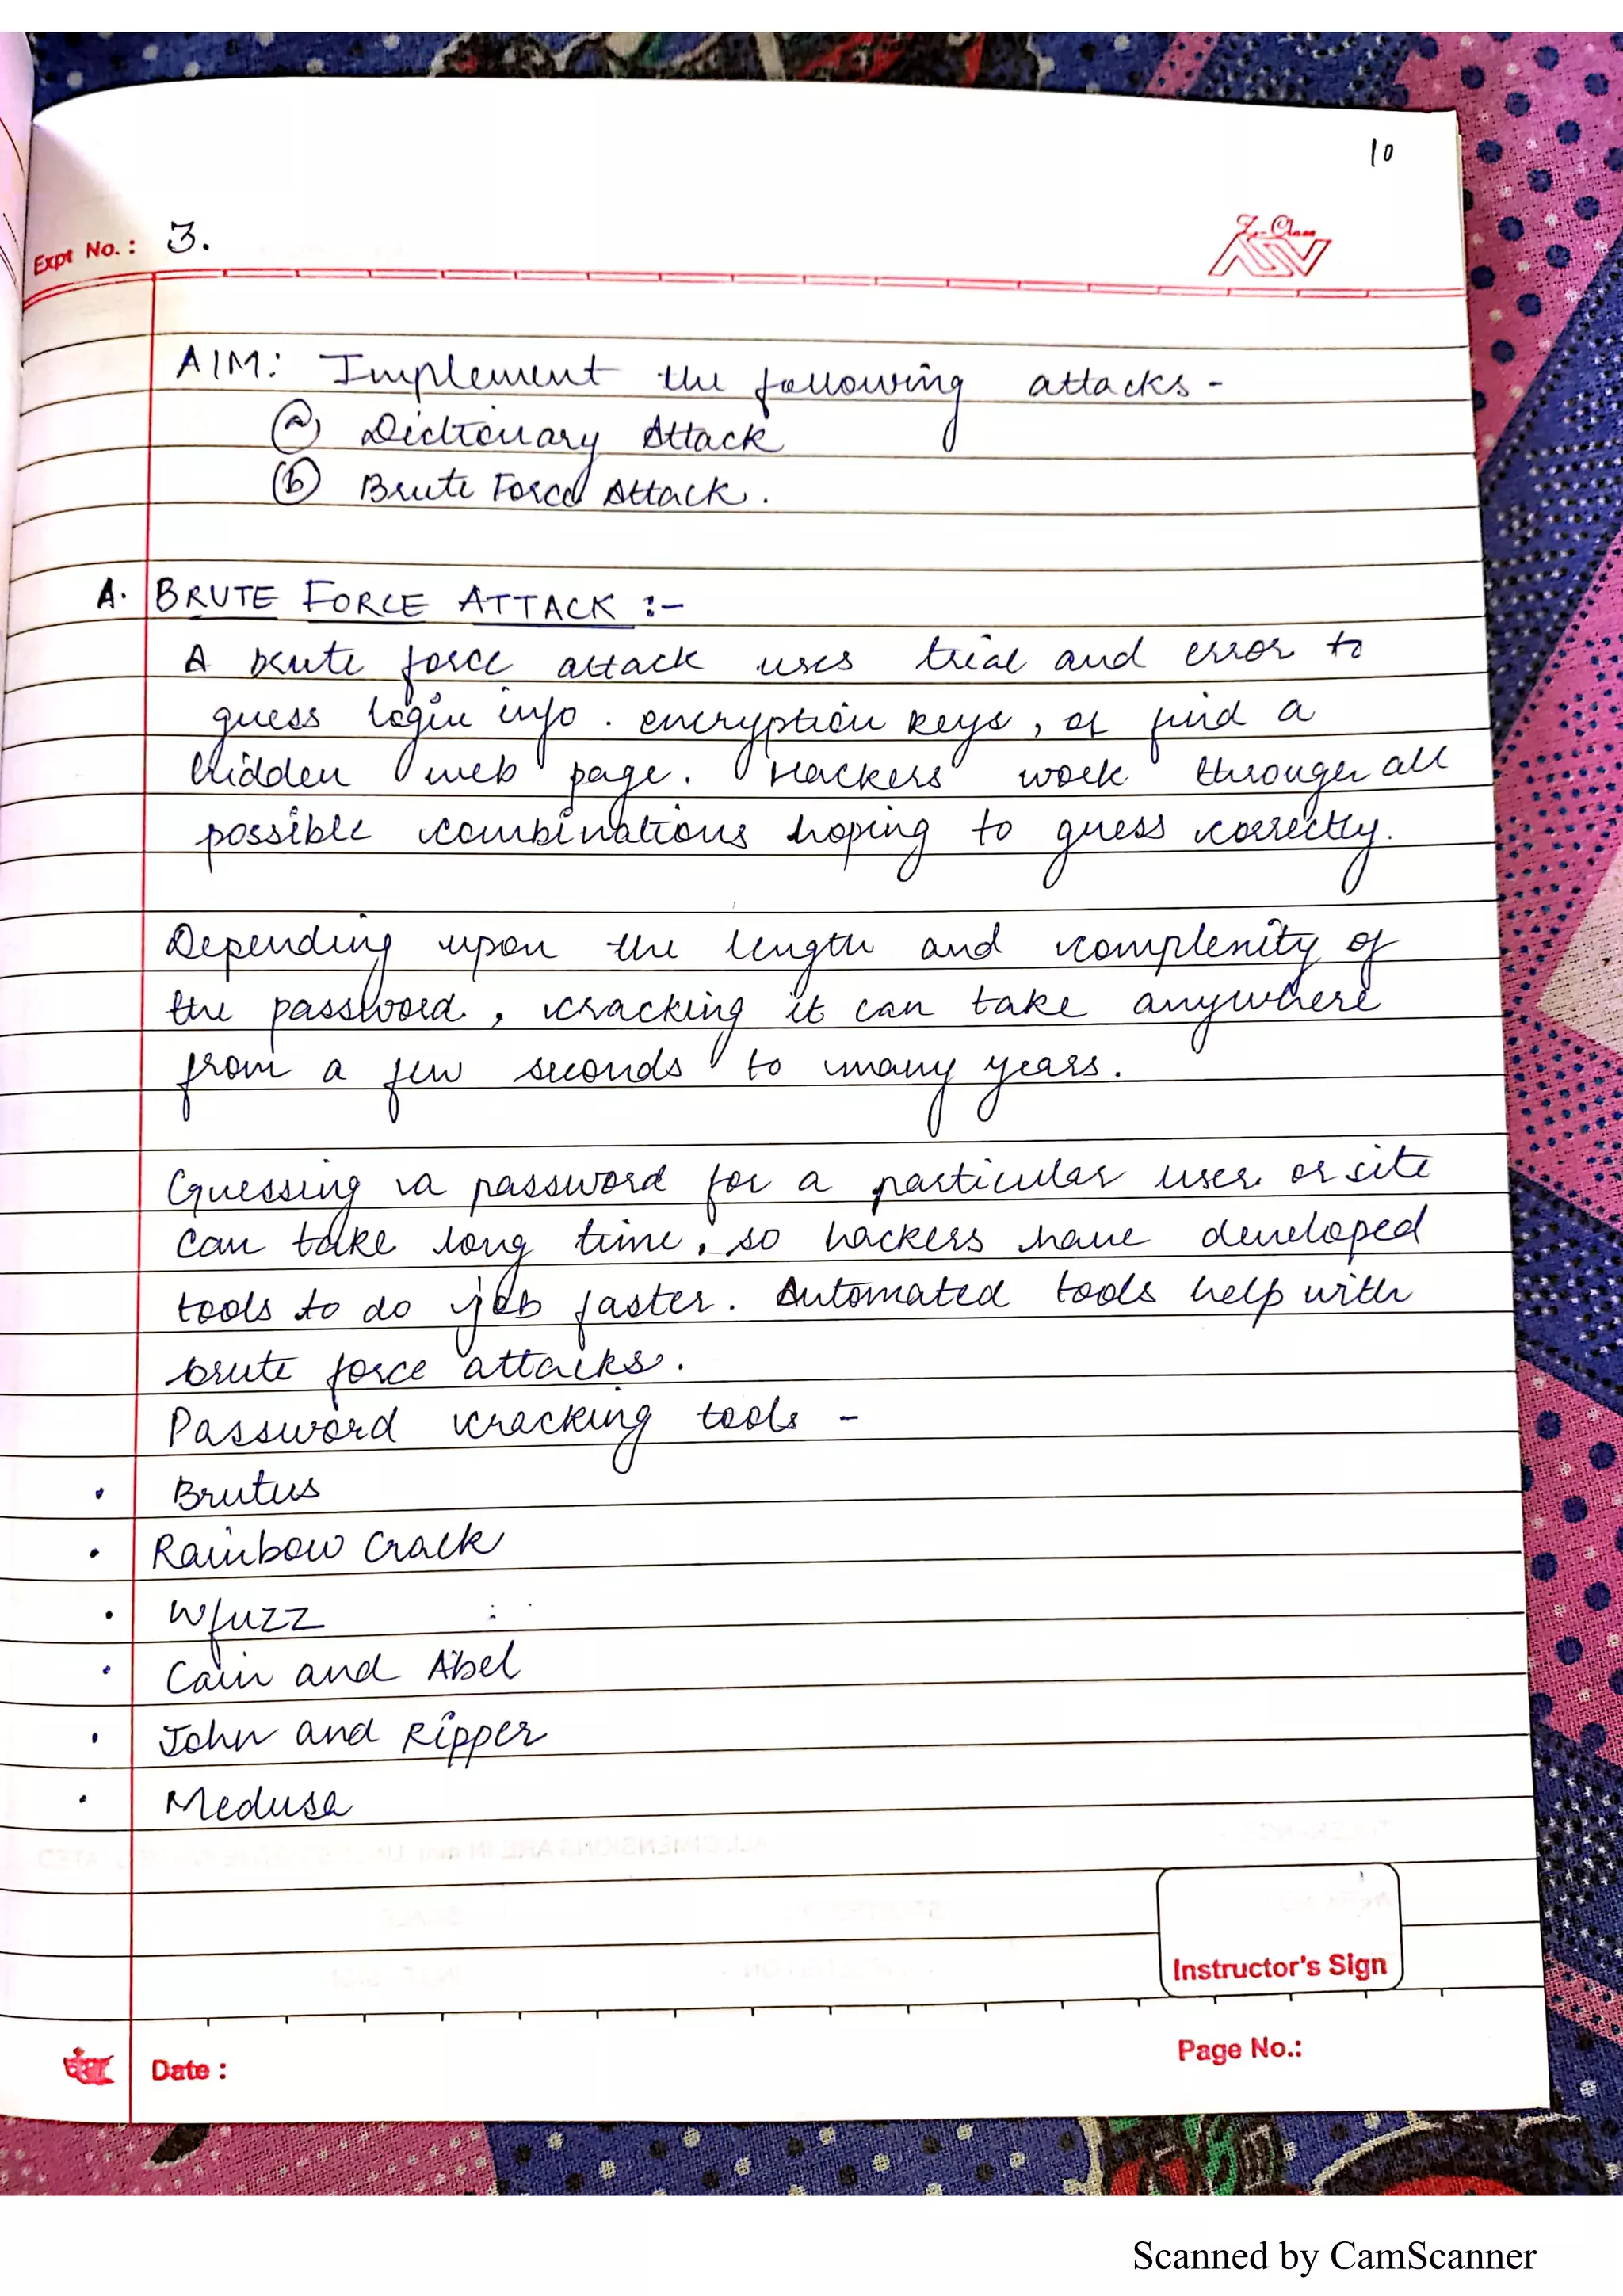 10
Expt No.: 3.
AIM: Implement the following attacks -
(a) Dictionary Attack
(b) Brute Force Attack.
A. BRUTE FORCE ATTACK :-
A brute force attack uses trial and error to
guess login info. encryption keys, or find a
hidden web page. Hackers work through all
possible combinations hoping to guess correctly.
Depending upon the length and complexity of
the password, cracking it can take anywhere
from a few seconds to many years.
Guessing a password for a particular user or site
can take long time, so hackers have developed
tools to do job faster. Automated tools help with
brute force attacks.
Password cracking tools -
• Brutus
• Rainbow Crack
• Wfuzz
• Cain and Abel
• John and Ripper
• Medusa
Instructor's Sign
Date :
Page No.:
Scanned by CamScanner